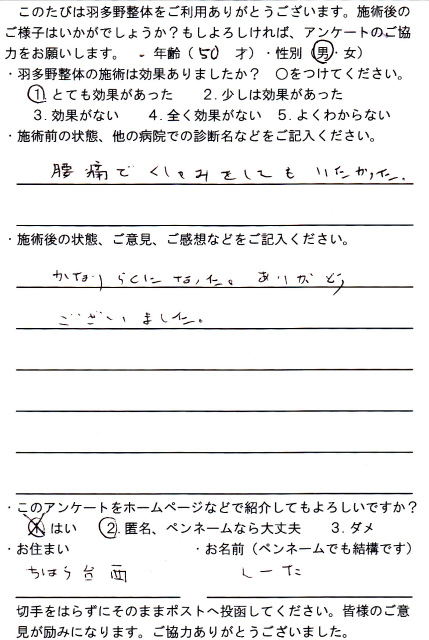 このたびは羽多野整体をご利用ありがとうございます。施術後の
ご様子はいかがでしょうか？もしよろしければ、アンケートのご協
力をお願いします。 - 年齢（50 才）・性別（男・女）
・羽多野整体の施術は効果ありましたか？ ○をつけてください。
1 とても効果があった 2. 少しは効果あった
3. 効果がない 4. 全く効果がない 5. よくわからない
・施術前の状態、他の病院での診断名などをご記入ください。
腰痛でくしゃみをしてもいたかった。
・施術後の状態、ご意見、ご感想などをご記入ください。
かなりらくになった。ありがとう
ございました。
・このアンケートをホームページなどで紹介してもよろしいですか？
1 はい 2. 匿名、ペンネームなら大丈夫 3. ダメ
・お住まい ・お名前（ペンネームでも結構です）
ちはら台西 しーた
切手をはらずにそのままポストへ投函してください。皆様のご意
見が励みになります。ご協力ありがとうございました。